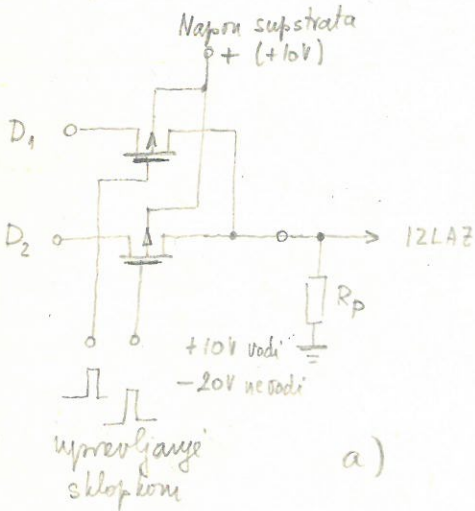 Napon supstrata
+ (+10V)
D₁
D₂
IZLAZ
Rp
+10V vodi
-20V ne vodi
upravljanje
sklopkom
a)